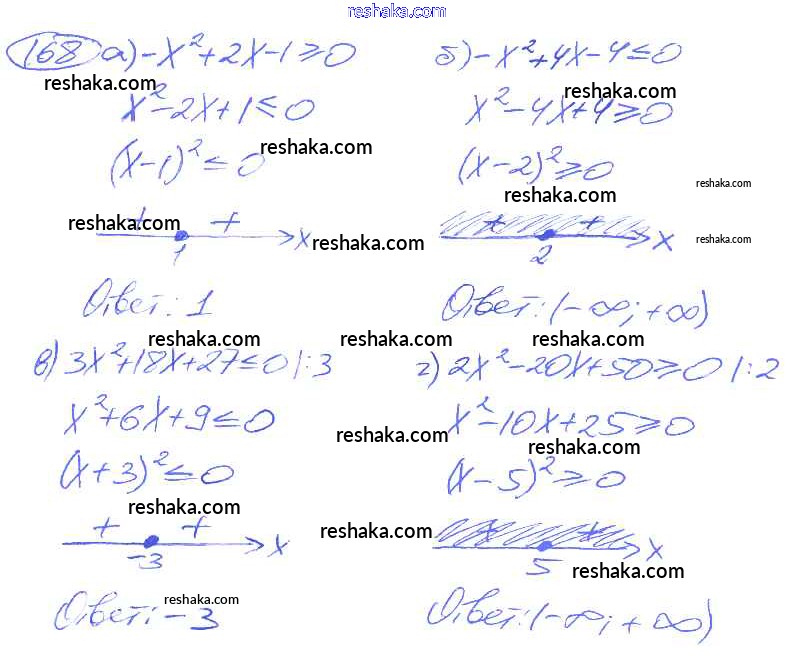 reshaka.com
168 а) -x²+2x-1≥0
reshaka.com
x²-2x+1≤0
(x-1)²≤0
reshaka.com
+ +
reshaka.com
1
x
reshaka.com
Ответ: 1
б) -x²+4x-4≤0
reshaka.com
x²-4x+4≥0
(x-2)²≥0
reshaka.com
reshaka.com
+ +
2
x
reshaka.com
Ответ: (-∞; +∞)
reshaka.com
reshaka.com
reshaka.com
в) 3x²+18x+27≤0 |:3
x²+6x+9≤0
reshaka.com
(x+3)²≤0
reshaka.com
+ +
-3
x
reshaka.com
Ответ: -3
г) 2x²-20x+50≥0 |:2
x²-10x+25≥0
reshaka.com
(x-5)²≥0
reshaka.com
+ +
5
x
reshaka.com
Ответ: (-∞; +∞)